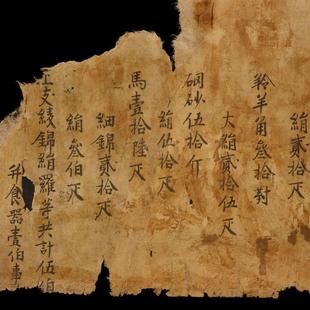 絹貳拾疋
羚羊角叁拾對
大絹貳拾伍疋
碙砂伍拾斤
絹伍拾疋
馬壹拾陸疋
細錦貳拾疋
絹叁伯疋
支綾錦絹羅等共計伍伯
并食器壹伯事